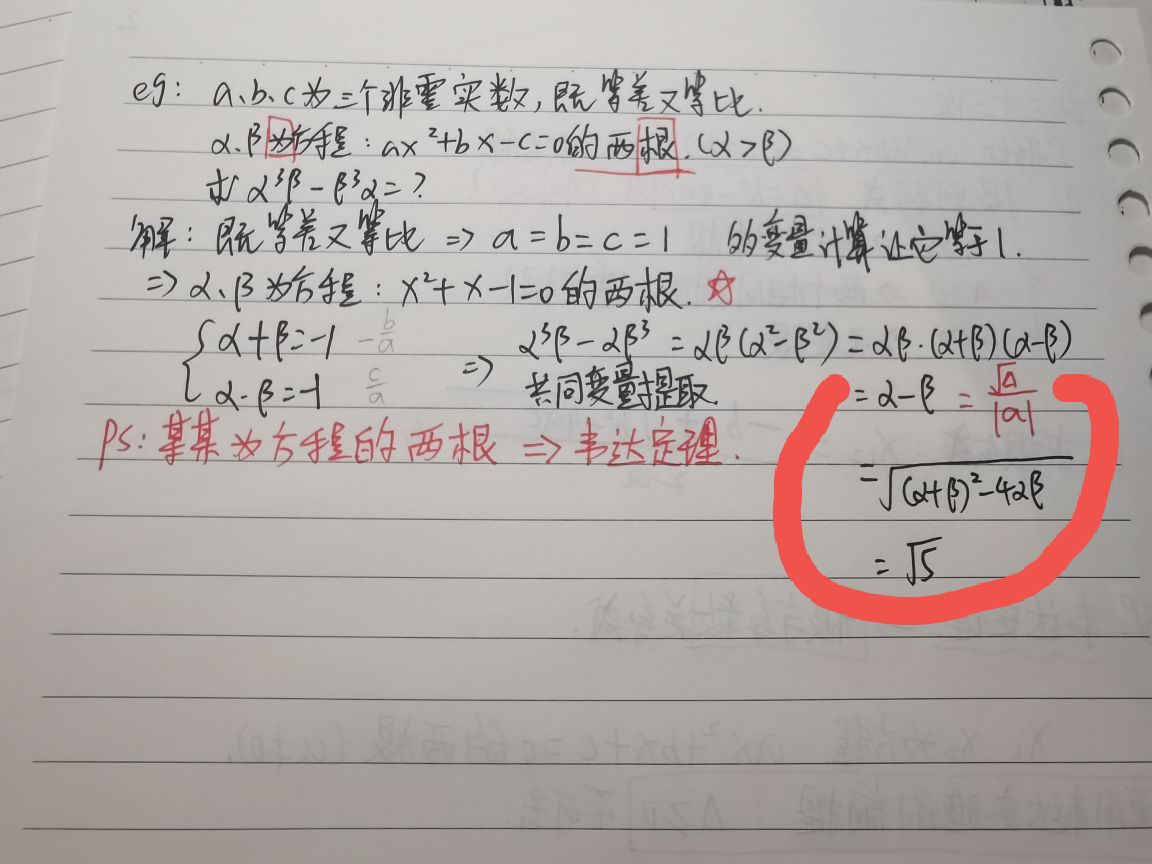 eg: a、b、c为三个非零实数,既等差又等比.
α、β为方程:ax²+bx-c=0的两根.(α>β)
求 α³β-β³α=?
解:既等差又等比 => a=b=c=1 的变量计算让它等于1.
=> α、β为方程:x²+x-1=0的两根. ☆
{α+β=-1 -b/a => α³β-αβ³ = αβ(α²-β²) = αβ·(α+β)(α-β)
α·β=-1 c/a 共同变量提取. = α-β = √Δ/|a|
ps:某某为方程的两根 => 韦达定理.
=√((α+β)²-4αβ)
=√5